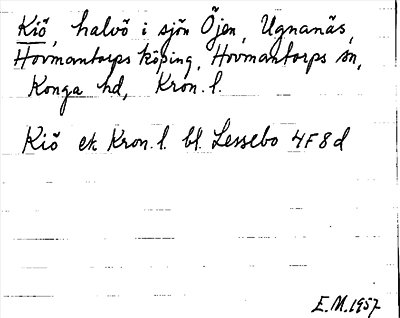 Kiö, halvö i sjön Öjen, Ugnanäs,
Hovmantorps köping, Hovmantorps sn,
Konga hd, Kron. l.
Kiö ek Kron. l. bl. Lessebo 4F8d
E.M. 1957